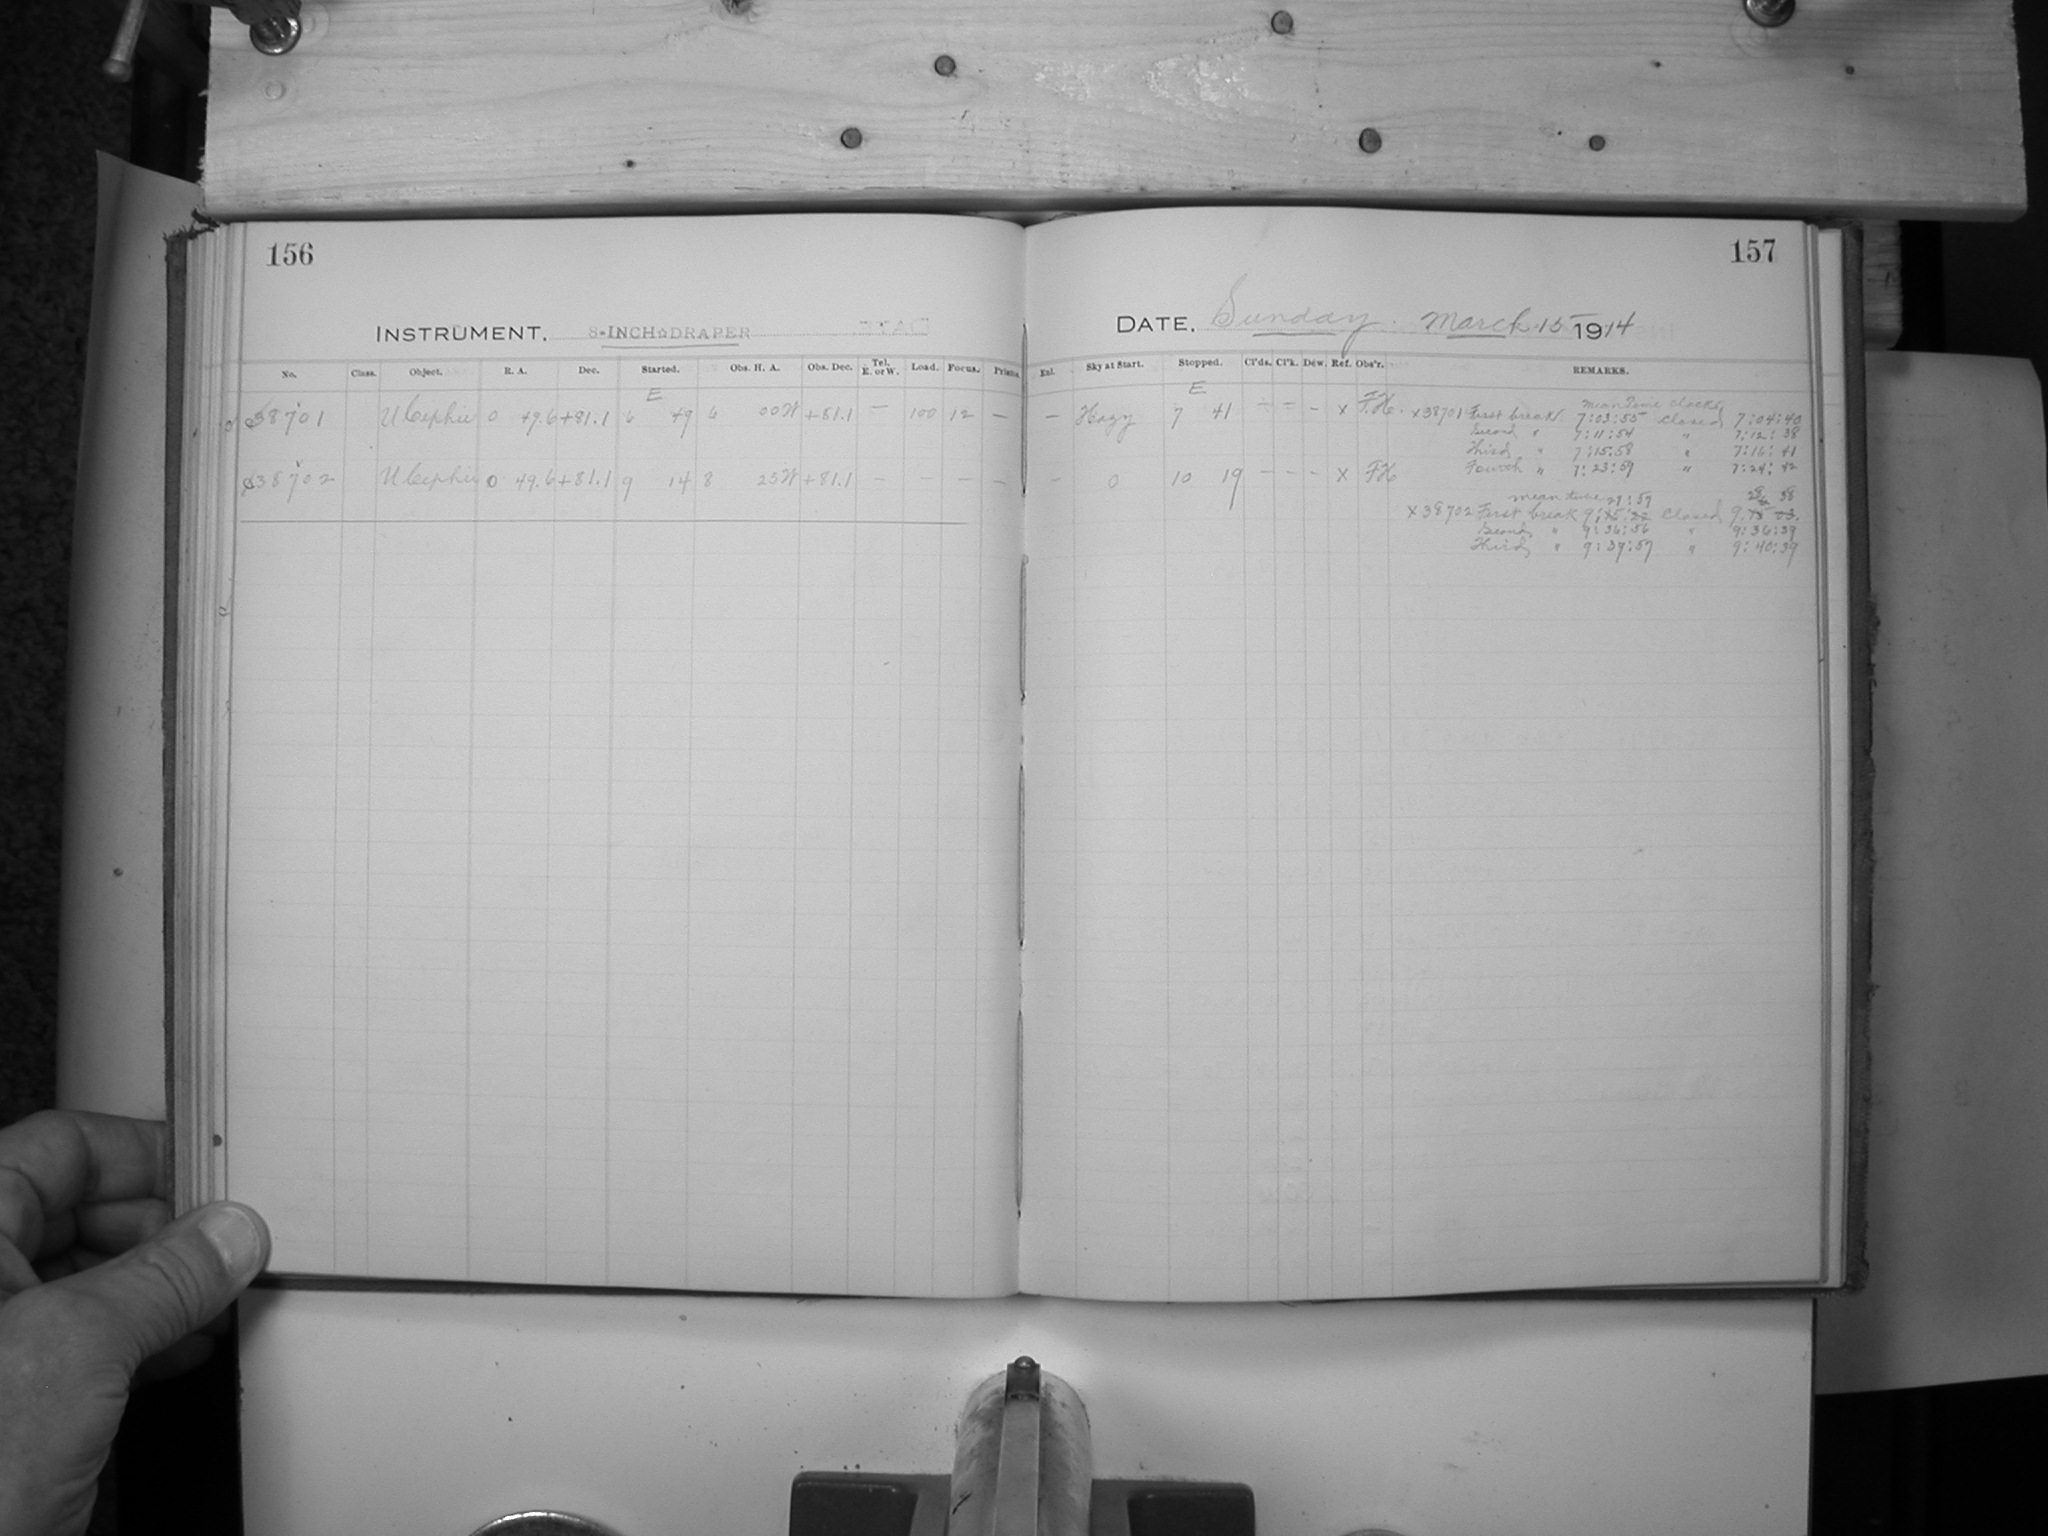 156
INSTRUMENT. 8-INCH DRAPER
No. Class. Object. R. A. Dec. Started. Obs. H. A. Obs. Dec. Tel. E. or W. Load. Focus. Prisms.
E
38701 U Cephei 0 49.6 +81.1 6 49 6 00 W +81.1 — 100 12 —
38702 U Cephei 0 49.6 +81.1 9 14 8 25 W +81.1 — — — —
157
DATE. Sunday. March 15 1914
Enl. Sky at Start. Stopped. Cl'ds. Cl'k. Dew. Ref. Obs'r. REMARKS.
E
— Hazy 7 41 — — — x F.H.
— 0 10 19 — — — x FH
Mean Time Clock
x38701 First break 7:03:55 Closed 7:04:40
Second " 7:11:54 " 7:12:38
Third " 7:15:58 " 7:16:41
Fourth " 7:23:59 " 7:24:42
mean time 27:59 28 58
x38702 First break 9:15:22 Closed 9:15 03.
Second " 9:36:56 " 9:36:39
Third " 9:39:57 " 9:40:39